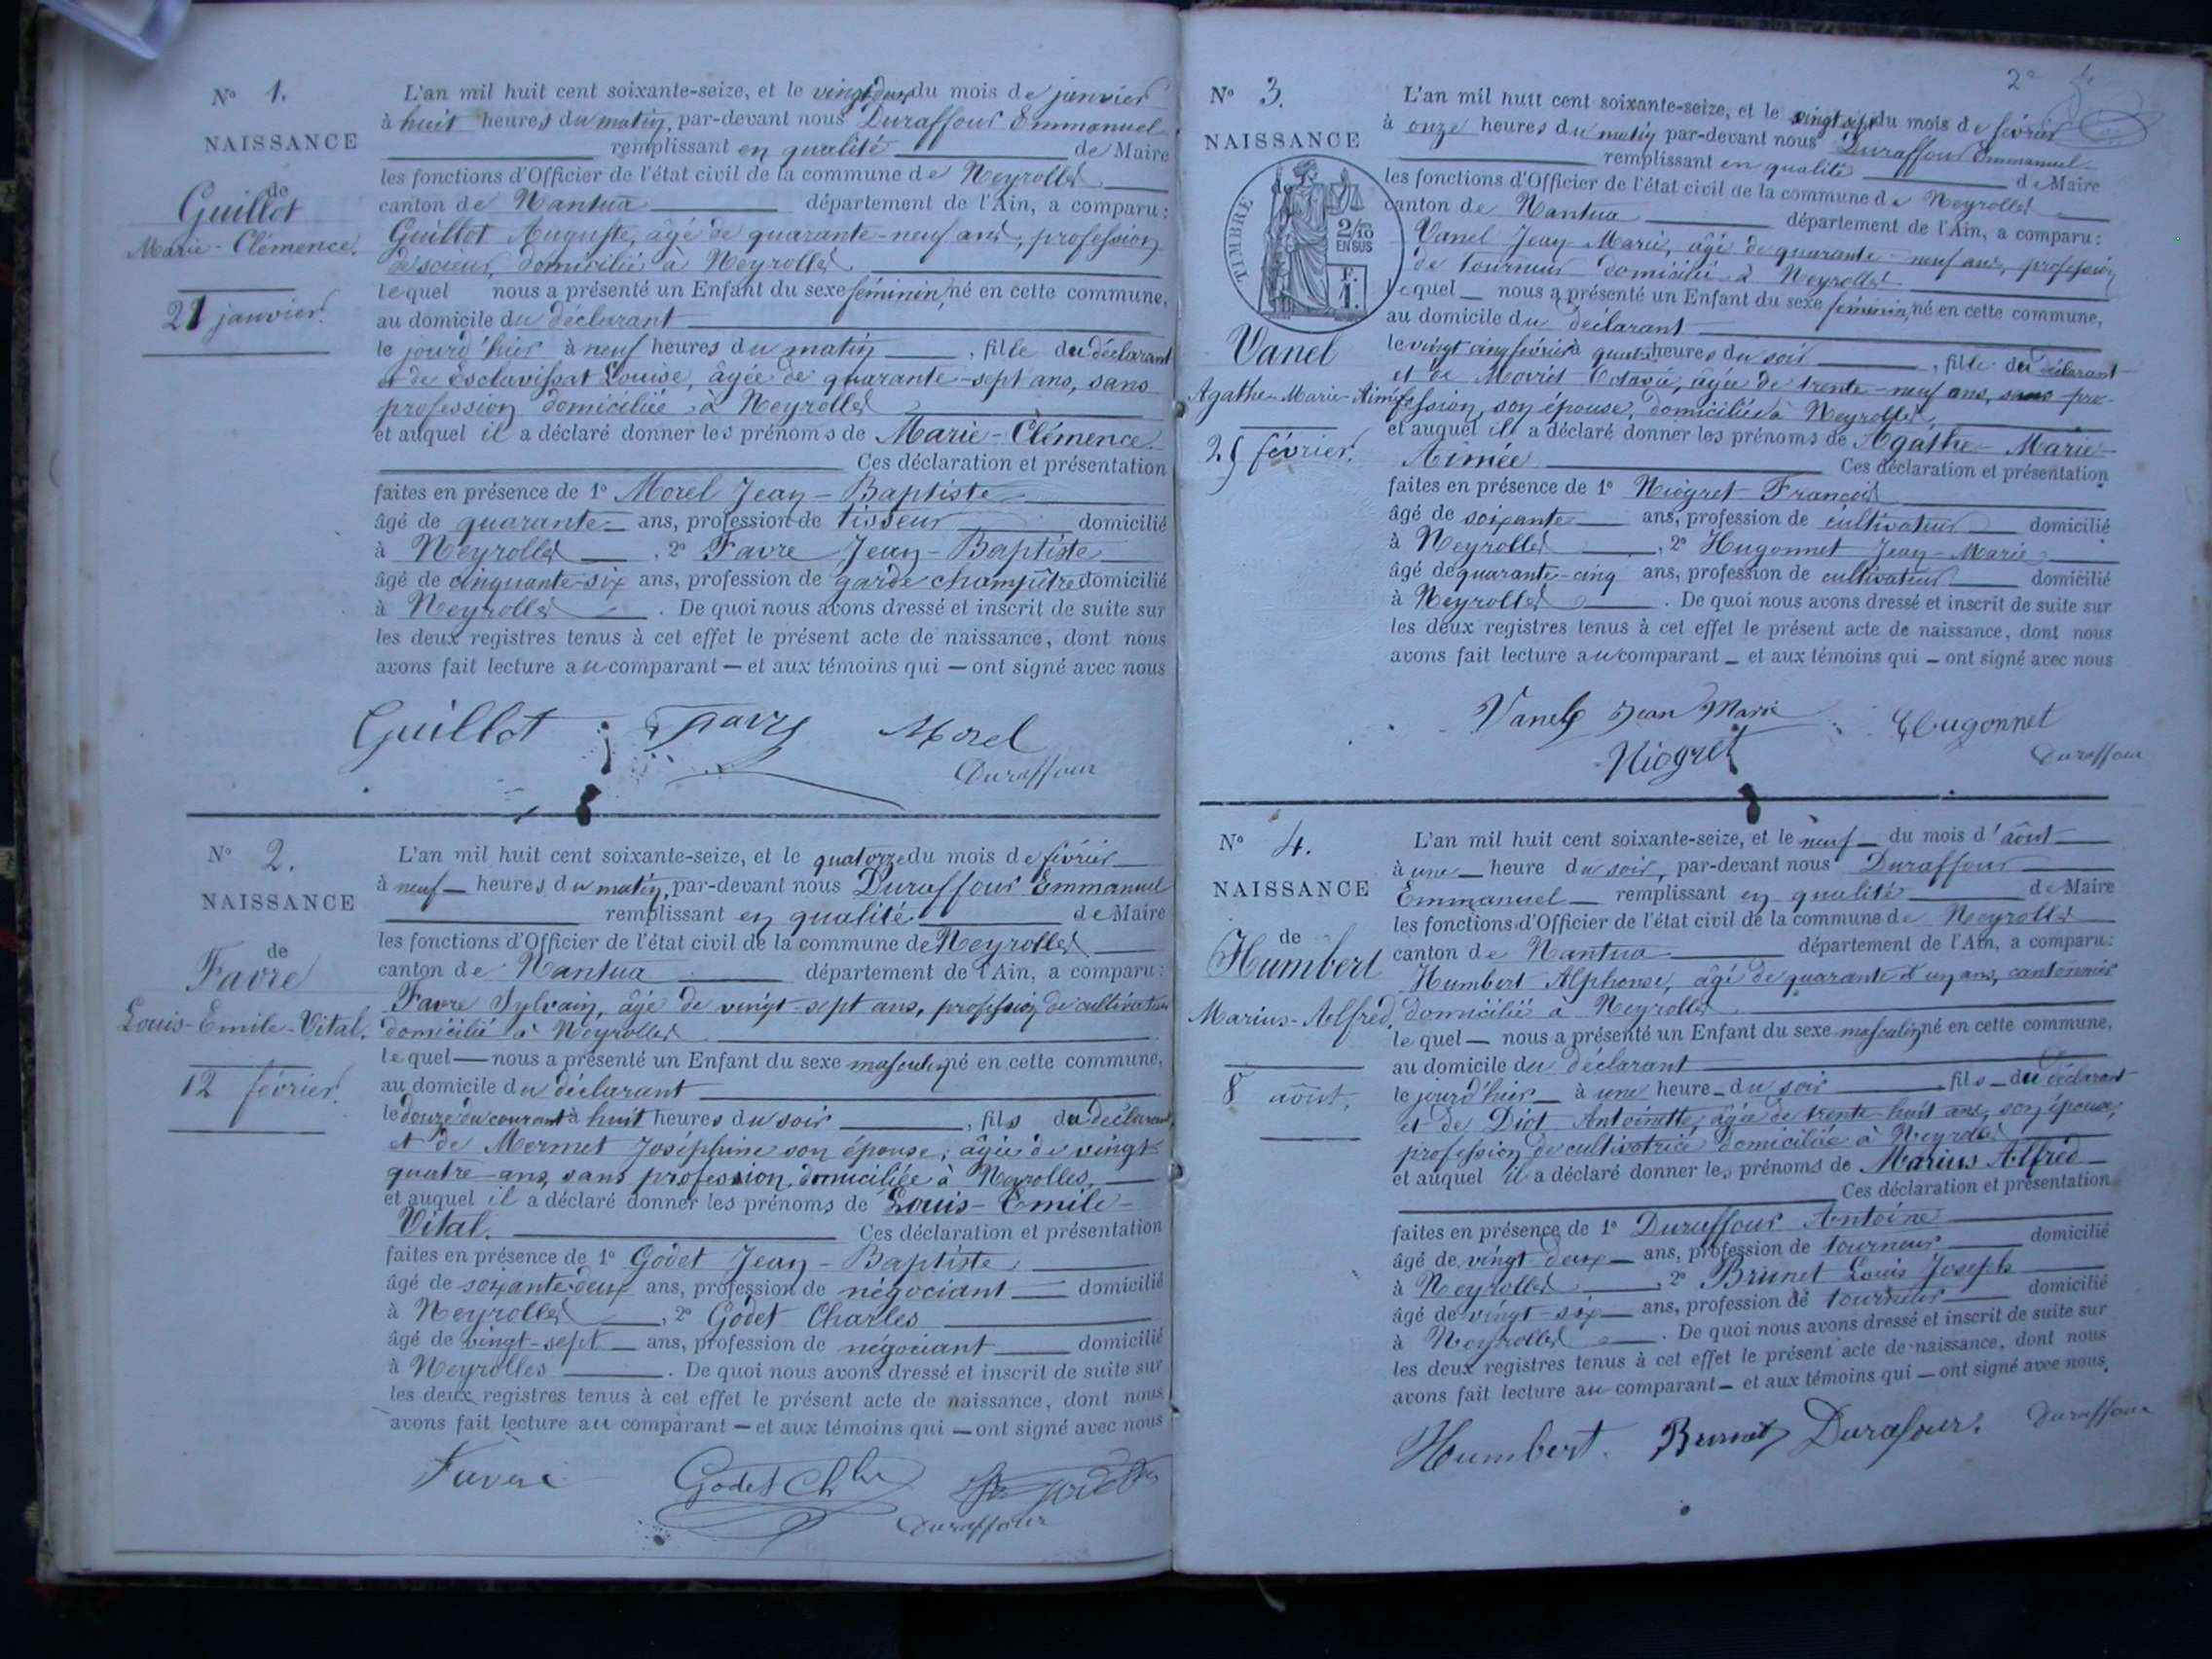 N° 1.
NAISSANCE
de
Guillot
Marie-Clémence.
21 janvier.
L'an mil huit cent soixante-seize, et le vingt deux du mois de janvier
à huit heures du matin, par-devant nous Duraffour Emmanuel
remplissant en qualité de Maire
les fonctions d'Officier de l'état civil de la commune de Neyrolles
canton de Nantua département de l'Ain, a comparu:
Guillot Auguste, âgé de quarante-neuf ans, profession
de scieur, domicilié à Neyrolles
lequel nous a présenté un Enfant du sexe féminin, né en cette commune,
au domicile du déclarant
le jourd'hier à neuf heures du matin, fille du déclarant
et de Esclavissat Louise, âgée de quarante-sept ans, sans
profession domiciliée à Neyrolles
et auquel il a déclaré donner les prénoms de Marie-Clémence
Ces déclaration et présentation
faites en présence de 1° Morel Jean-Baptiste
âgé de quarante ans, profession de tisseur domicilié
à Neyrolles, 2° Favre Jean-Baptiste
âgé de cinquante-six ans, profession de garde champêtre domicilié
à Neyrolles. De quoi nous avons dressé et inscrit de suite sur
les deux registres tenus à cet effet le présent acte de naissance, dont nous
avons fait lecture au comparant — et aux témoins qui — ont signé avec nous
Guillot Favre Morel
Duraffour
N° 2.
NAISSANCE
de
Favre
Louis-Emile-Vital.
12 février.
L'an mil huit cent soixante-seize, et le quatorze du mois de février
à neuf — heures du matin, par-devant nous Duraffour Emmanuel
remplissant en qualité de Maire
les fonctions d'Officier de l'état civil de la commune de Neyrolles
canton de Nantua département de l'Ain, a comparu:
Favre Sylvain, âgé de vingt-sept ans, profession de cultivateur
domicilié à Neyrolles
lequel — nous a présenté un Enfant du sexe masculin, né en cette commune,
au domicile du déclarant
le douze du courant à huit heures du soir, fils du déclarant,
et de Mermet Joséphine son épouse, âgée de vingt
quatre ans, sans profession, domiciliée à Neyrolles,
et auquel il a déclaré donner les prénoms de Louis-Emile-
Vital. Ces déclaration et présentation
faites en présence de 1° Godet Jean-Baptiste
âgé de soixante-deux ans, profession de négociant domicilié
à Neyrolles, 2° Godet Charles
âgé de vingt-sept ans, profession de négociant domicilié
à Neyrolles. De quoi nous avons dressé et inscrit de suite sur
les deux registres tenus à cet effet le présent acte de naissance, dont nous
avons fait lecture au comparant — et aux témoins qui — ont signé avec nous
Favre Godet Ch Godet
Duraffour
2e
N° 3.
NAISSANCE
TIMBRE
2/10
EN SUS
F.
1.
Vanel
Agathe-Marie-Aimée
25 février.
L'an mil huit cent soixante-seize, et le vingt sept du mois de février
à onze heures du matin par-devant nous Duraffour Emmanuel
remplissant en qualité de Maire
les fonctions d'Officier de l'état civil de la commune de Neyrolles
canton de Nantua département de l'Ain, a comparu:
Vanel Jean Marie, âgé de quarante-neuf ans, profession
de tourneur domicilié à Neyrolles
lequel — nous a présenté un Enfant du sexe féminin, né en cette commune,
au domicile du déclarant
le vingt cinq février à quatre heures du soir, fille du déclarant
et de Octavie, âgée de trente-neuf ans, sans pro-
fession, son épouse, domiciliée à Neyrolles,
et auquel il a déclaré donner les prénoms de Agathe-Marie-
Aimée Ces déclaration et présentation
faites en présence de 1° Niogret François
âgé de soixante ans, profession de cultivateur domicilié
à Neyrolles, 2° Hugonnet Jean-Marie
âgé de quarante-cinq ans, profession de cultivateur domicilié
à Neyrolles. De quoi nous avons dressé et inscrit de suite sur
les deux registres tenus à cet effet le présent acte de naissance, dont nous
avons fait lecture au comparant — et aux témoins qui — ont signé avec nous
Vanel Jean Marie Hugonnet
Niogret Duraffour
N° 4.
NAISSANCE
de
Humbert
Marius-Alfred,
8 août.
L'an mil huit cent soixante-seize, et le neuf du mois d'août
à une heure du soir, par-devant nous Duraffour
Emmanuel remplissant en qualité de Maire
les fonctions d'Officier de l'état civil de la commune de Neyrolles
canton de Nantua département de l'Ain, a comparu:
Humbert Alphonse, âgé de quarante et un ans, cantonnier
domicilié à Neyrolles
lequel — nous a présenté un Enfant du sexe masculin, né en cette commune,
au domicile du déclarant
le jourd'hier à une heure du soir, fils du déclarant
et de Diot Antoinette, âgée de trente-huit ans, son épouse,
profession de cultivatrice domiciliée à Neyrolles
et auquel il a déclaré donner les prénoms de Marius Alfred
Ces déclaration et présentation
faites en présence de 1° Duraffour Antoine
âgé de vingt deux ans, profession de tourneur domicilié
à Neyrolles, 2° Brunet Louis Joseph
âgé de vingt-six ans, profession de tourneur domicilié
à Neyrolles. De quoi nous avons dressé et inscrit de suite sur
les deux registres tenus à cet effet le présent acte de naissance, dont nous
avons fait lecture au comparant — et aux témoins qui — ont signé avec nous.
Humbert. Brunet Durafour. Duraffour